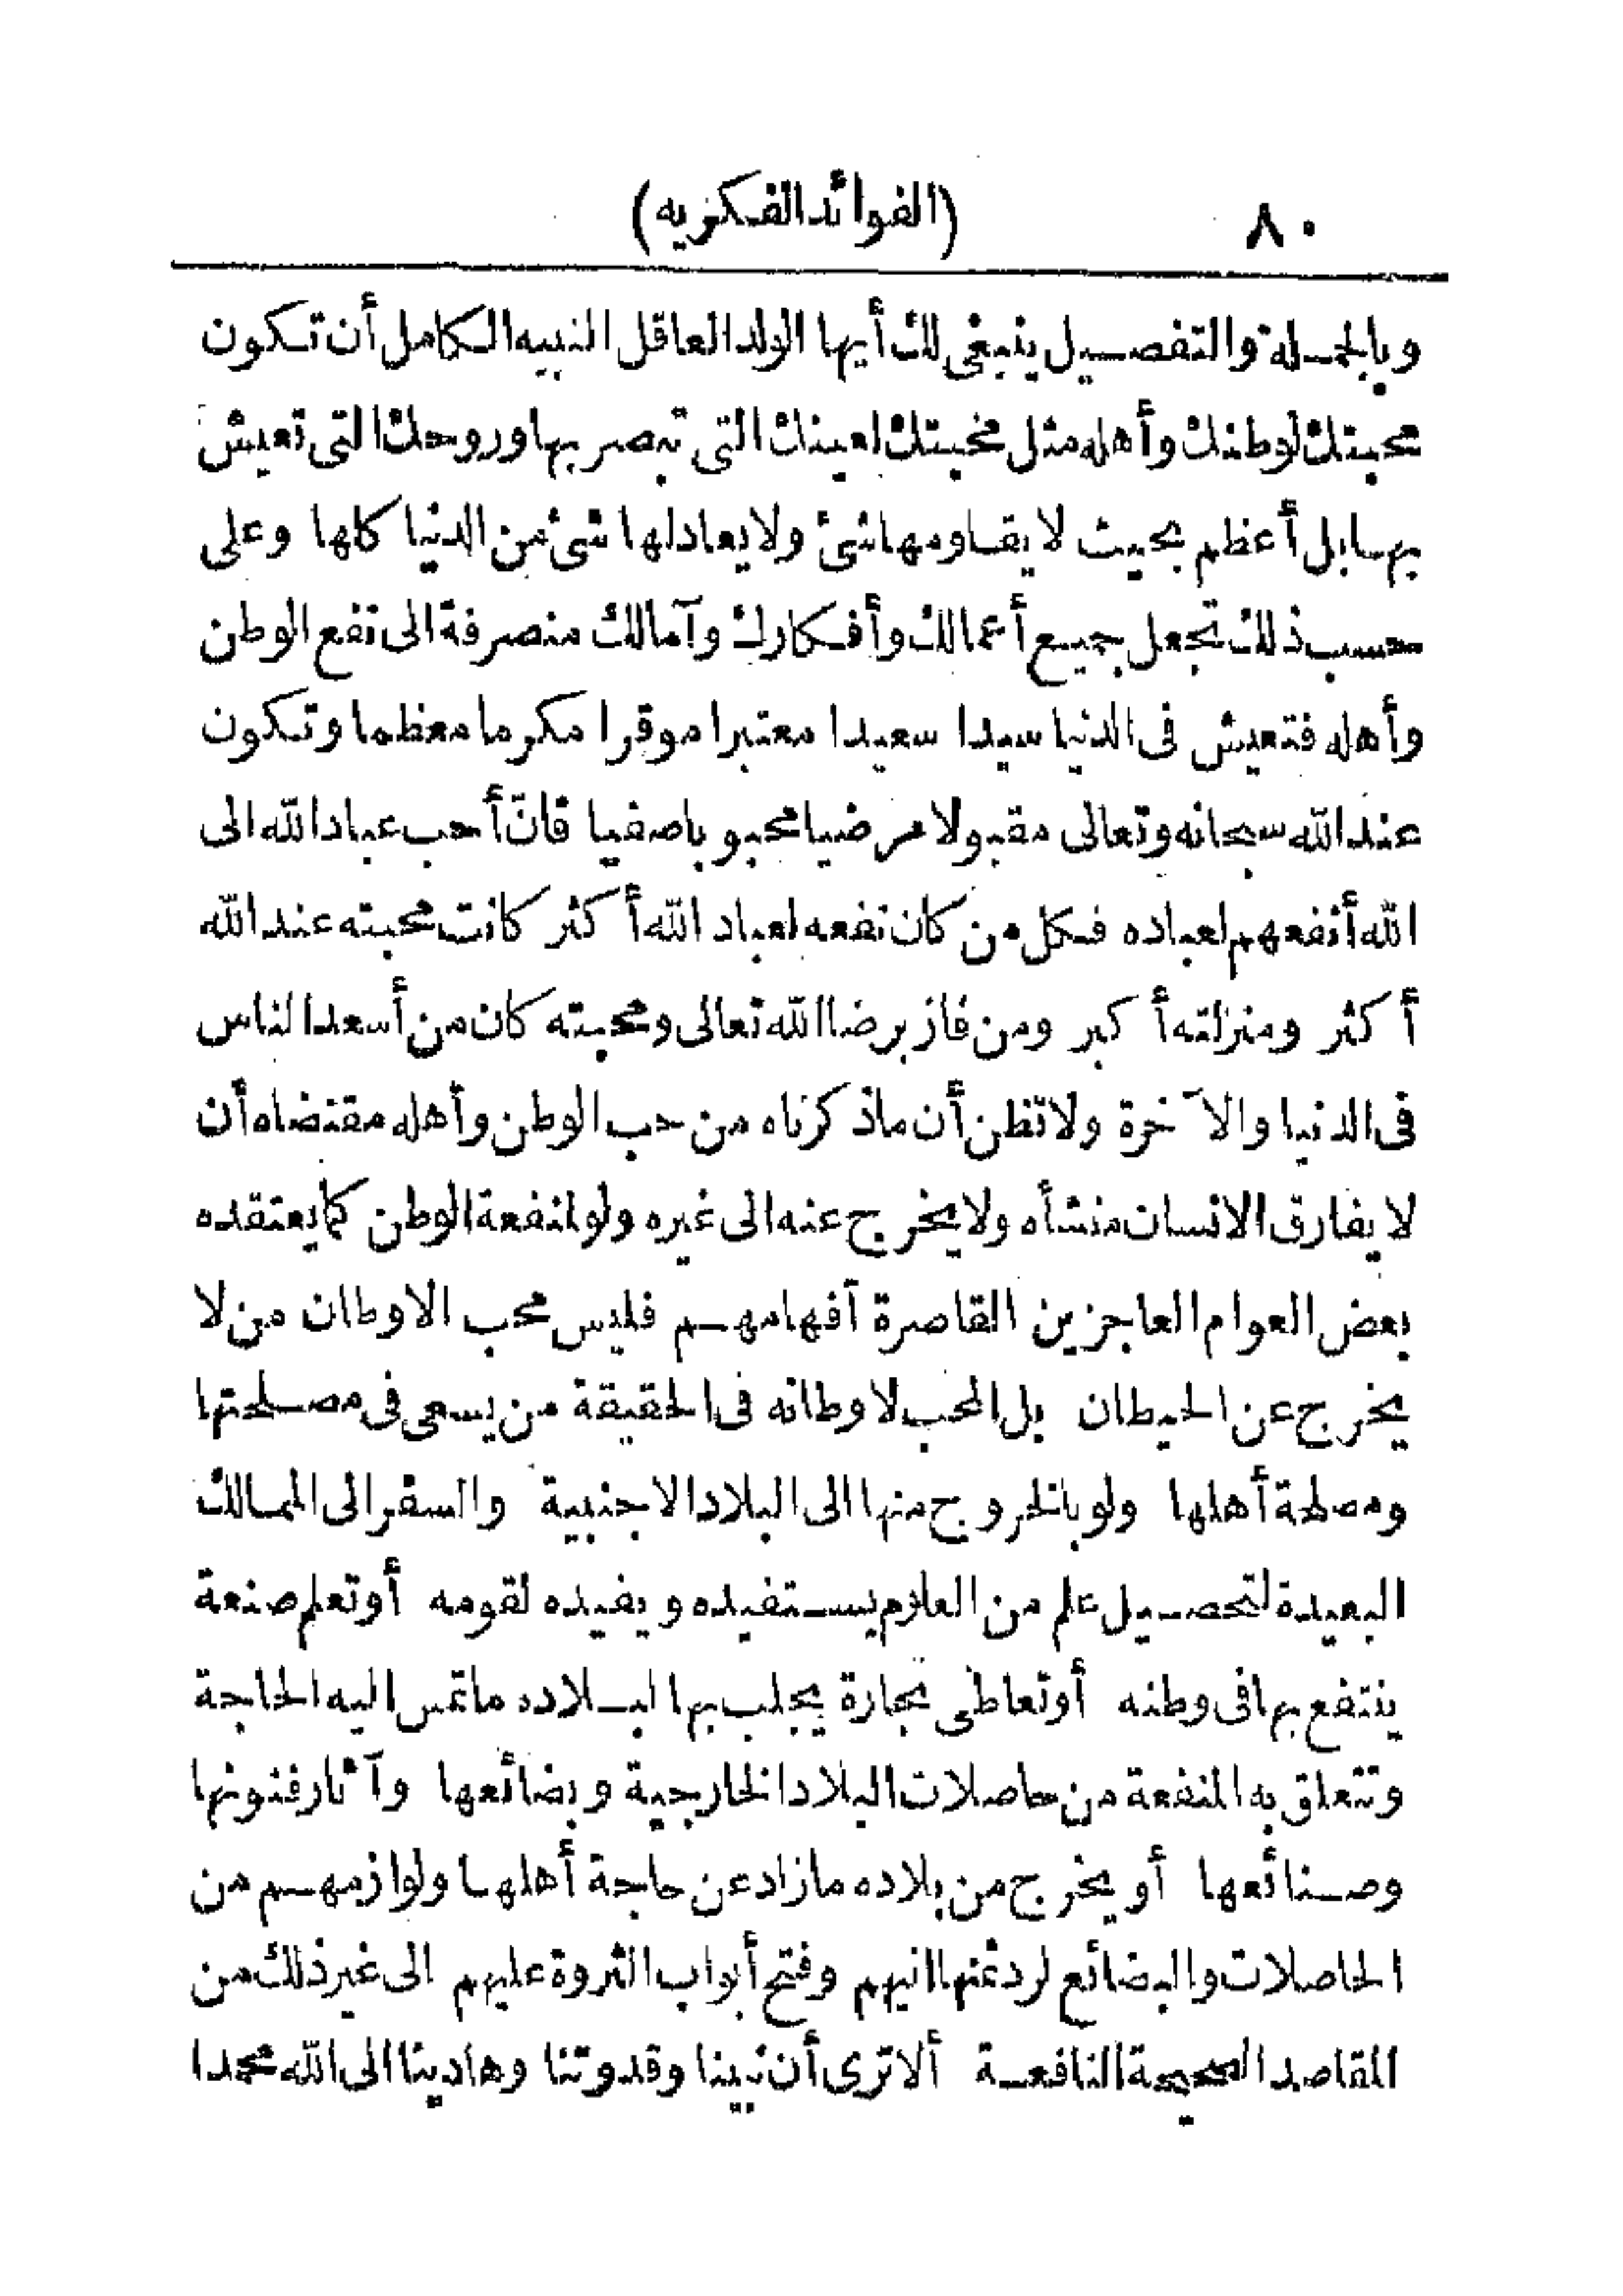 ٨٠ (الفوائد الفكريه)
وبالجملة والتفصيل ينبغى لك أيها الولد العاقل النبيه الكامل أن تكون
محبتك لوطنك وأهله مثل محبتك لعينك التى تبصر بها وروحك التى تعيش
بها بل أعظم بحيث لا يقاومها شئ ولا يعادلها شئ من الدنيا كلها وعلى
حسب ذلك تجعل جميع أعمالك وأفكارك وآمالك منصرفة الى نفع الوطن
وأهله فتعيش فى الدنيا سيدا سعيدا معتبرا موقرا مكرما معظما وتكون
عند الله سبحانه وتعالى مقبولا مرضيا محبوبا صفيا فانّ أحب عباد الله الى
الله أنفعهم لعباده فكل من كان نفعه لعباد الله أكثر كانت محبته عند الله
أكثر ومنزلته أكبر ومن فاز برضا الله تعالى ومحبته كان من أسعد الناس
فى الدنيا والآخرة ولا تظن أن ما ذكرناه من حب الوطن وأهله مقتضاه أن
لا يفارق الانسان منشأه ولا يخرج عنه الى غيره ولو لمنفعة الوطن كما يعتقده
بعض العوام العاجزين القاصرة أفهامهم فليس محب الاوطان من لا
يخرج عن الحيطان بل المحب لاوطانه فى الحقيقة من يسعى فى مصلحتها
ومصلحة أهلها ولو بالخروج منها الى البلاد الاجنبية والسفر الى الممالك
البعيدة لتحصيل علم من العلوم يستفيده ويفيده لقومه أو تعلم صنعة
ينتفع بها فى وطنه أو تعاطى تجارة يجلب بها لبلاده ما تمس اليه الحاجة
وتتعلق به المنفعة من حاصلات البلاد الخارجية وبضائعها وآثار فنونها
وصنائعها أو يخرج من بلاده ما زاد عن حاجة أهلها ولوازمهم من
الحاصلات والبضائع لرد ثمنها اليهم وفتح أبواب الثروة عليهم الى غير ذلك من
المقاصد الصحيحة النافعة ألا ترى أن نبينا وقدوتنا وهادينا الى الله محمدا